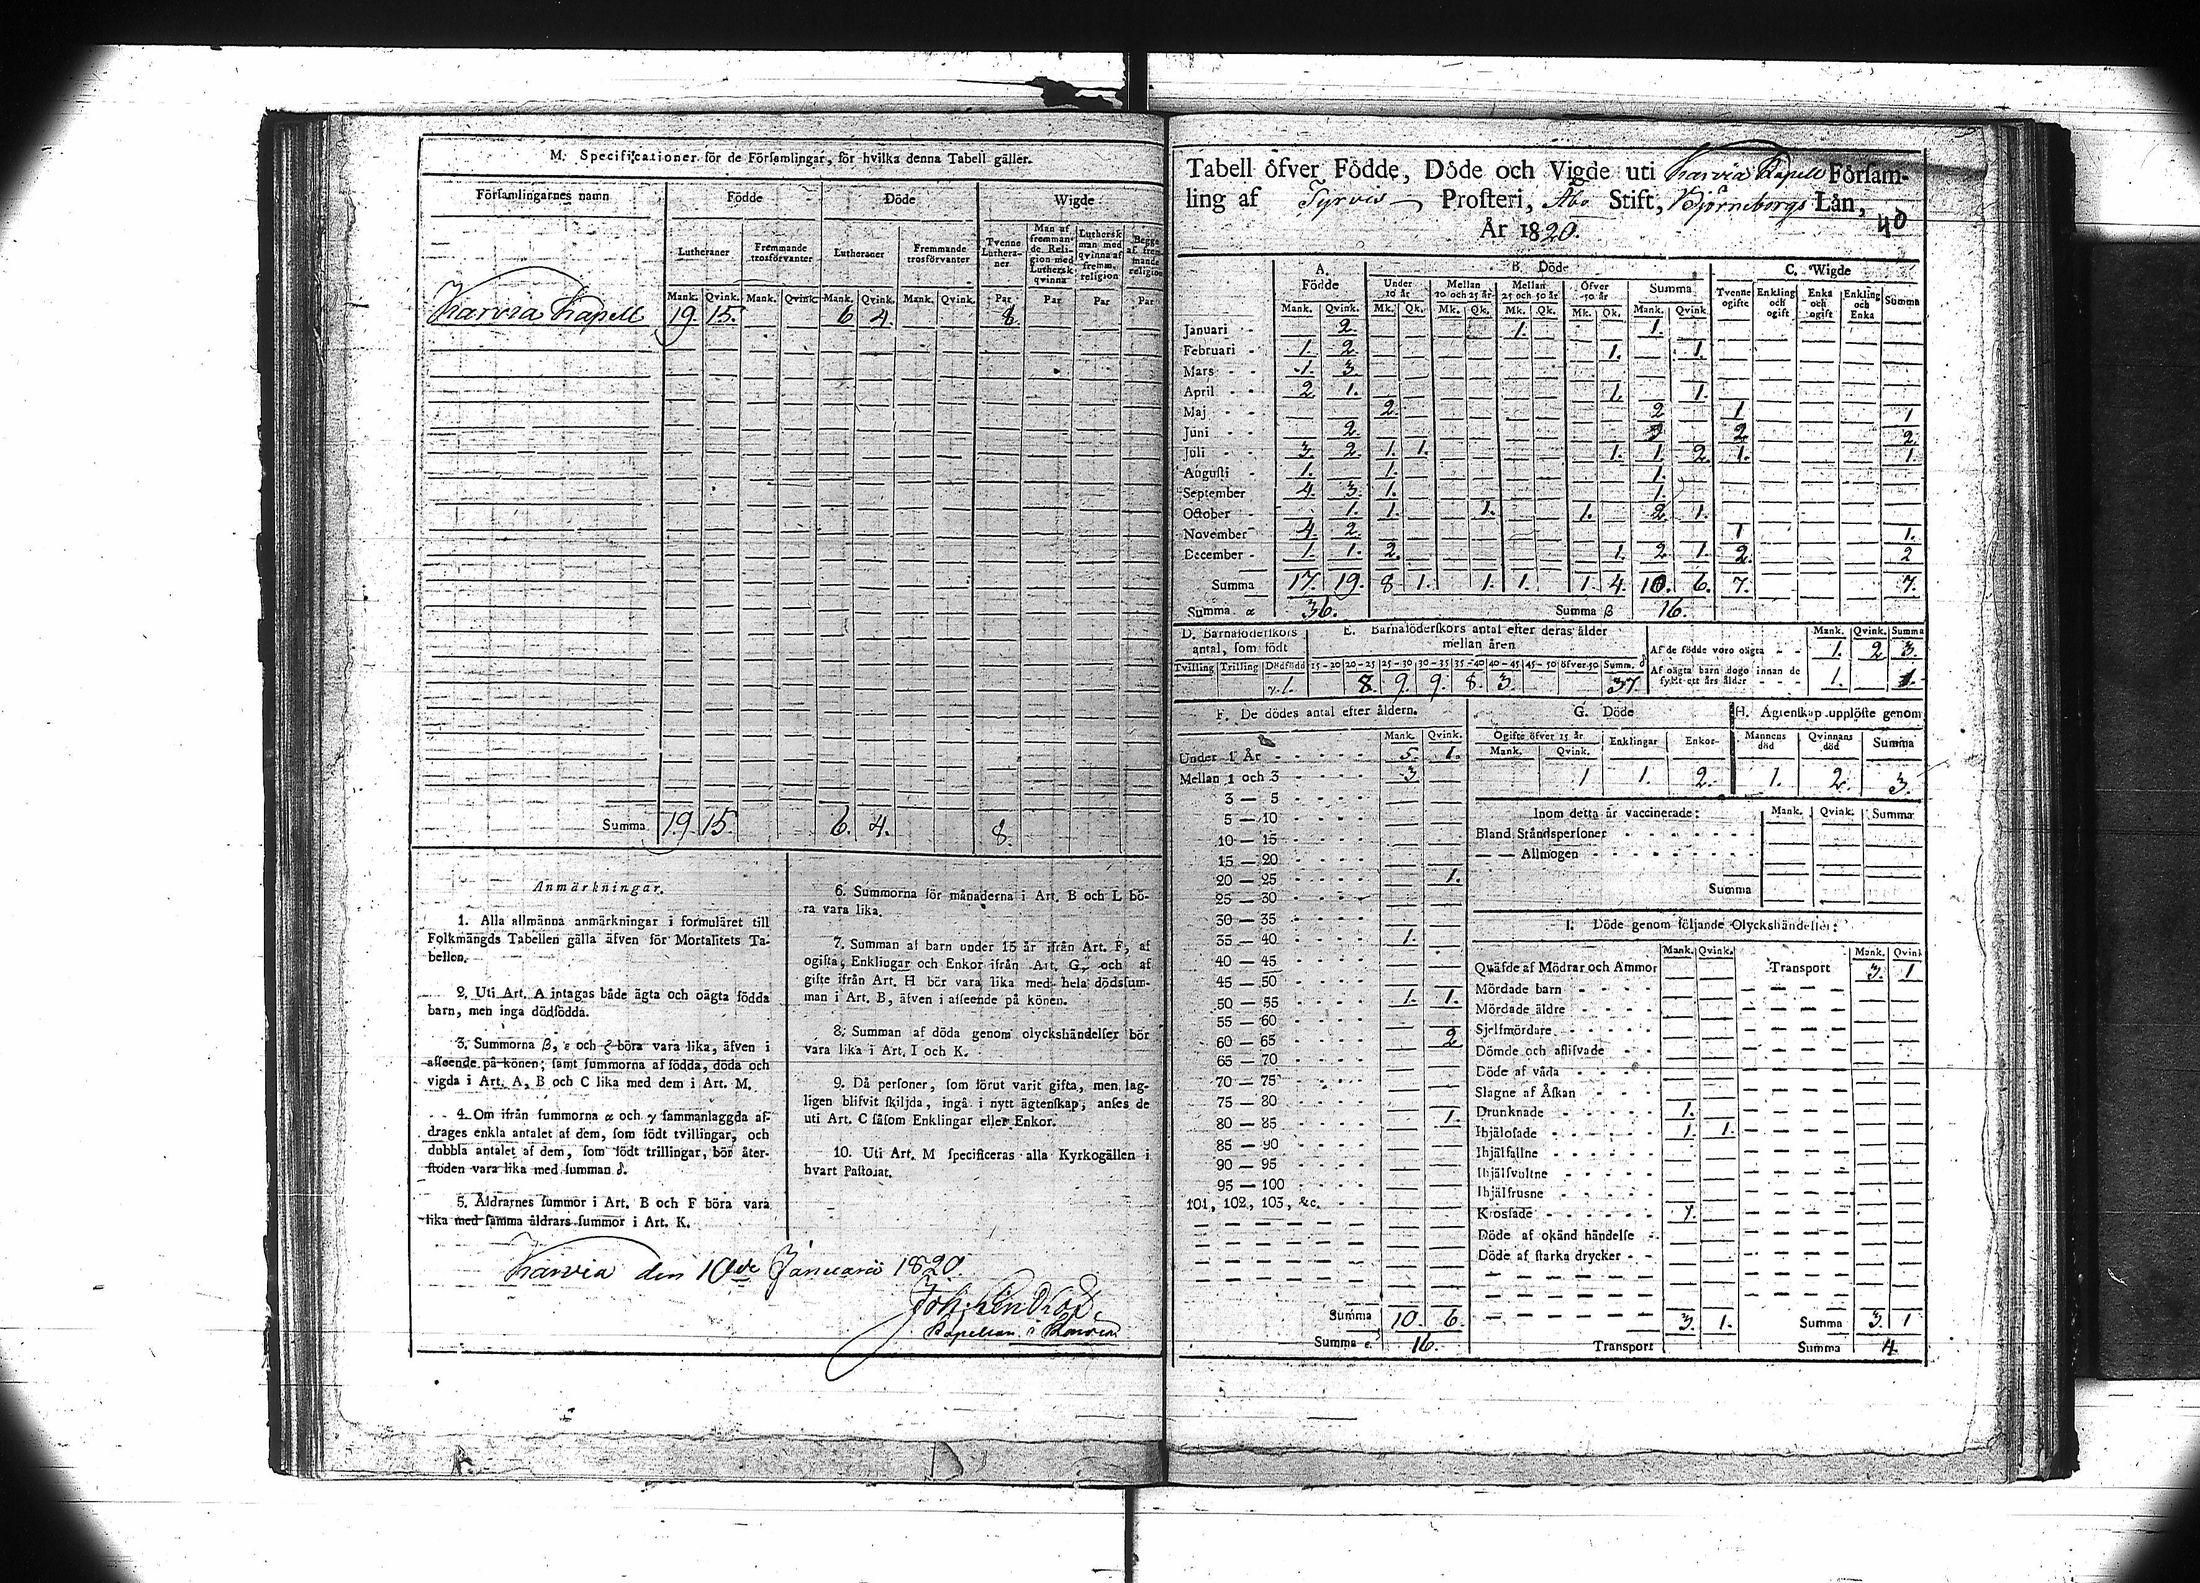 M. Specificationer för de Församlingar, för hvilka denna Tabell gäller.
Församlingarnes namn Födde Döde Wigde
Lutheraner Fremmande trosförvanter Lutheraner Fremmande trosförvanter Tvenne Lutheraner Man af fremmande Religion med Luthersk qvinna Luthersk man med qvinna af fremm. religion Begge af fremmande religion
Mank. Qvink. Mank. Qvink. Mank. Qvink. Mank. Qvink. Par Par Par Par
Karvia Kapell 19. 15. 6 4. 8.
Summa 19 15. 6. 4. 8.
Anmärkningar.
1. Alla allmänna anmärkningar i formuläret till
Folkmängds Tabellen gälla äfven för Mortalitets Ta-
bellen.
2. Uti Art. A intagas både ägta och oägta födda
barn, men inga dödfödda.
3. Summorna β, ε och ζ böra vara lika, äfven i
afseende på könen; samt summorna af födda, döda och
vigda i Art. A, B och C lika med dem i Art. M.
4. Om ifrån summorna α och γ sammanlaggda af-
drages enkla antalet af dem, som födt tvillingar, och
dubbla antalet af dem, som födt trillingar, bör åter-
stoden vara lika med summan δ.
5. Åldrarnes summor i Art. B och F böra vara
lika med samma åldrars summor i Art. K.
6. Summorna för månaderna i Art. B och L bö-
ra vara lika.
7. Summan af barn under 15 år ifrån Art. F, af
ogifta, Enklingar och Enkor ifrån Art. G, och af
gifte ifrån Art. H bör vara lika med hela dödssum-
man i Art. B, äfven i afseende på könen.
8. Summan af döda genom olyckshändelser bör
vara lika i Art. I och K.
9. Då personer, som förut varit gifta, men lag-
ligen blifvit skiljda, ingå i nytt ägtenskap, anses de
uti Art. C såsom Enklingar eller Enkor.
10. Uti Art. M specificeras alla Kyrkogällen i
hvart Pastorat.
Karvia den 10de Januarii 1820.
Joh.
Kapellan i Karvia
Tabell öfver Födde, Döde och Vigde uti Karvia Kapell Församling
ling af Tyrvis Prosteri, Åbo Stift, Björneborgs Län,
År 1820.
40
A. Födde B. Döde C. Wigde
Under 10 år Mellan 10 och 25 år Mellan 25 och 50 år Öfver 50 år Summa Tvenne ogifte Enkling och ogift Enka och ogift Enkling och Enka Summa
Mank. Qvink. Mk. Qk. Mk. Qk. Mk. Qk. Mk. Qk. Mank. Qvink.
Januari 2. 1. 1.
Februari 1. 2. 1. 1.
Mars 1. 3.
April 2 1. 1. 1.
Maj 2. 2 1 1
Juni 2. 2 2
Juli 3 2 1. 1. 1. 1. 2 1. 1.
Augusti 1. 1. 1.
September 4. 3. 1. 1.
October 1. 1. 1. 1. 2 1.
November 4 2 1 1.
December 1. 1. 2. 1. 2. 1. 2. 2
Summa 17. 19. 8 1. 1. 1. 1. 4. 10. 6. 7. 7.
Summa α 36. Summa β 16.
D. Barnaföderskors antal, som födt E. Barnaföderskors antal efter deras ålder mellan åren
Tvilling Trilling Dödfödd 15-20 20-25 25-30 30-35 35-40 40-45 45-50 öfver 50 Summ. δ
γ. 1. 8. 9. 9. 8. 3. 37.
Mank. Qvink. Summa
Af de födde voro oägta 1. 2 3.
Af oägta barn dogo innan de fyllt ett års ålder 1. 1.
F. De dödes antal efter åldern.
Mank. Qvink.
Under 1 År 5. 1.
Mellan 1 och 3 3
3 — 5
5 — 10
10 — 15
15 — 20
20 — 25 1.
25 — 30
30 — 35
35 — 40 1.
40 — 45
45 — 50
50 — 55 1. 1.
55 — 60
60 — 65 2
65 — 70
70 — 75
75 — 80
80 — 85 1.
85 — 90
90 — 95
95 — 100
101, 102, 103, &c.
Summa 10. 6.
Summa ε. 16.
G. Döde
Ogifte öfver 15 år Enklingar Enkor
Mank. Qvink.
1 1. 2.
H. Ägtenskap upplöste genom
Mannens död Qvinnans död Summa
1. 2. 3.
Inom detta år vaccinerade: Mank. Qvink. Summa
Bland Ståndspersoner
— — Allmogen
Summa
I. Döde genom följande Olyckshändelser:
Mank. Qvink. Mank. Qvink
Quäfde af Mödrar och Ammor Transport 3. 1
Mördade barn
Mördade äldre
Sjelfmördare
Dömde och aflifvade
Döde af våda
Slagne af Åskan
Drunknade 1.
Ihjälosade 1. 1.
Ihjälfallne
Ihjälsvultne
Ihjälfrusne
Krossade 1.
Döde af okänd händelse
Döde af starka drycker
3. 1. Summa 3. 1
Transport Summa 4.